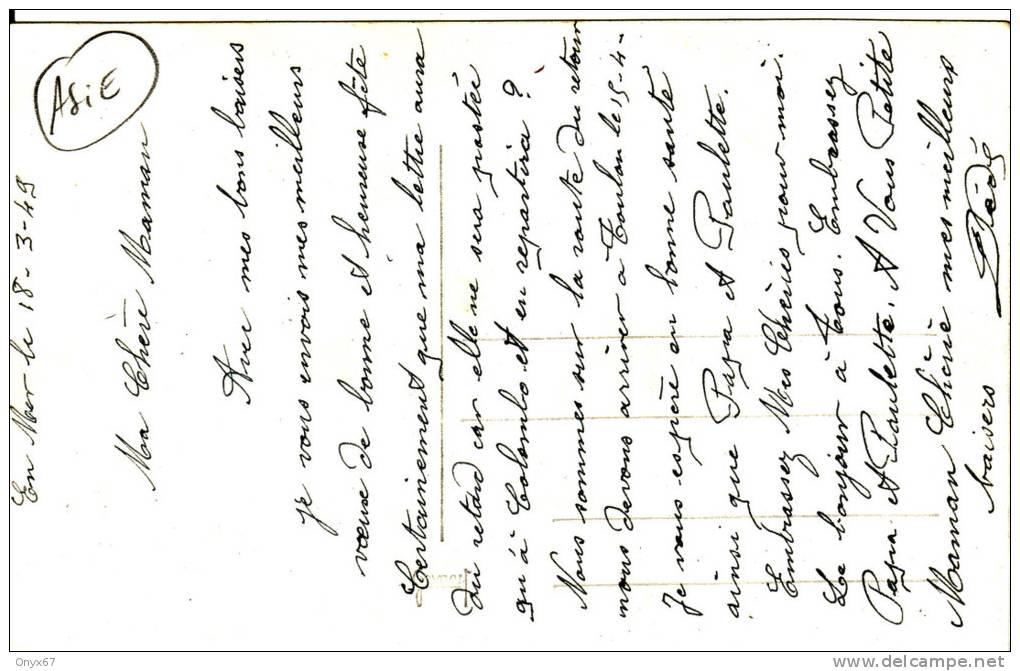 En Mer le 18-3-49
ASIE
Ma Chère Maman
Avec mes bons baisers
je vous envois mes meilleurs
vœux de bonne et heureuse fête
Certainement que ma lettre aura
du retard car elle ne sera postée
qu'à Colombo et en repartira ?
Nous sommes sur la route du retour
nous devons arriver à Toulon le 15-4-
Je vous espère en bonne santé
ainsi que Papa et Paulette.
Embrassez Mes Chéries pour moi.
Le bonjour à tous. Embrassez
Papa et Paulette. A Vous Petite
Maman Chérie mes meilleurs
baisers
Dédé
Onyx67
www.delcampe.net